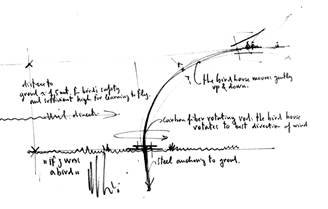 the bird house moves gently
up & down.
distance to
ground ± 4.5 mt. for bird's safety
and sufficient high for learning to fly.
wind direction
carbon fiber rotating rod: the bird house
rotates to best direction of wind
steel anchoring to ground.
"if I was
a bird"